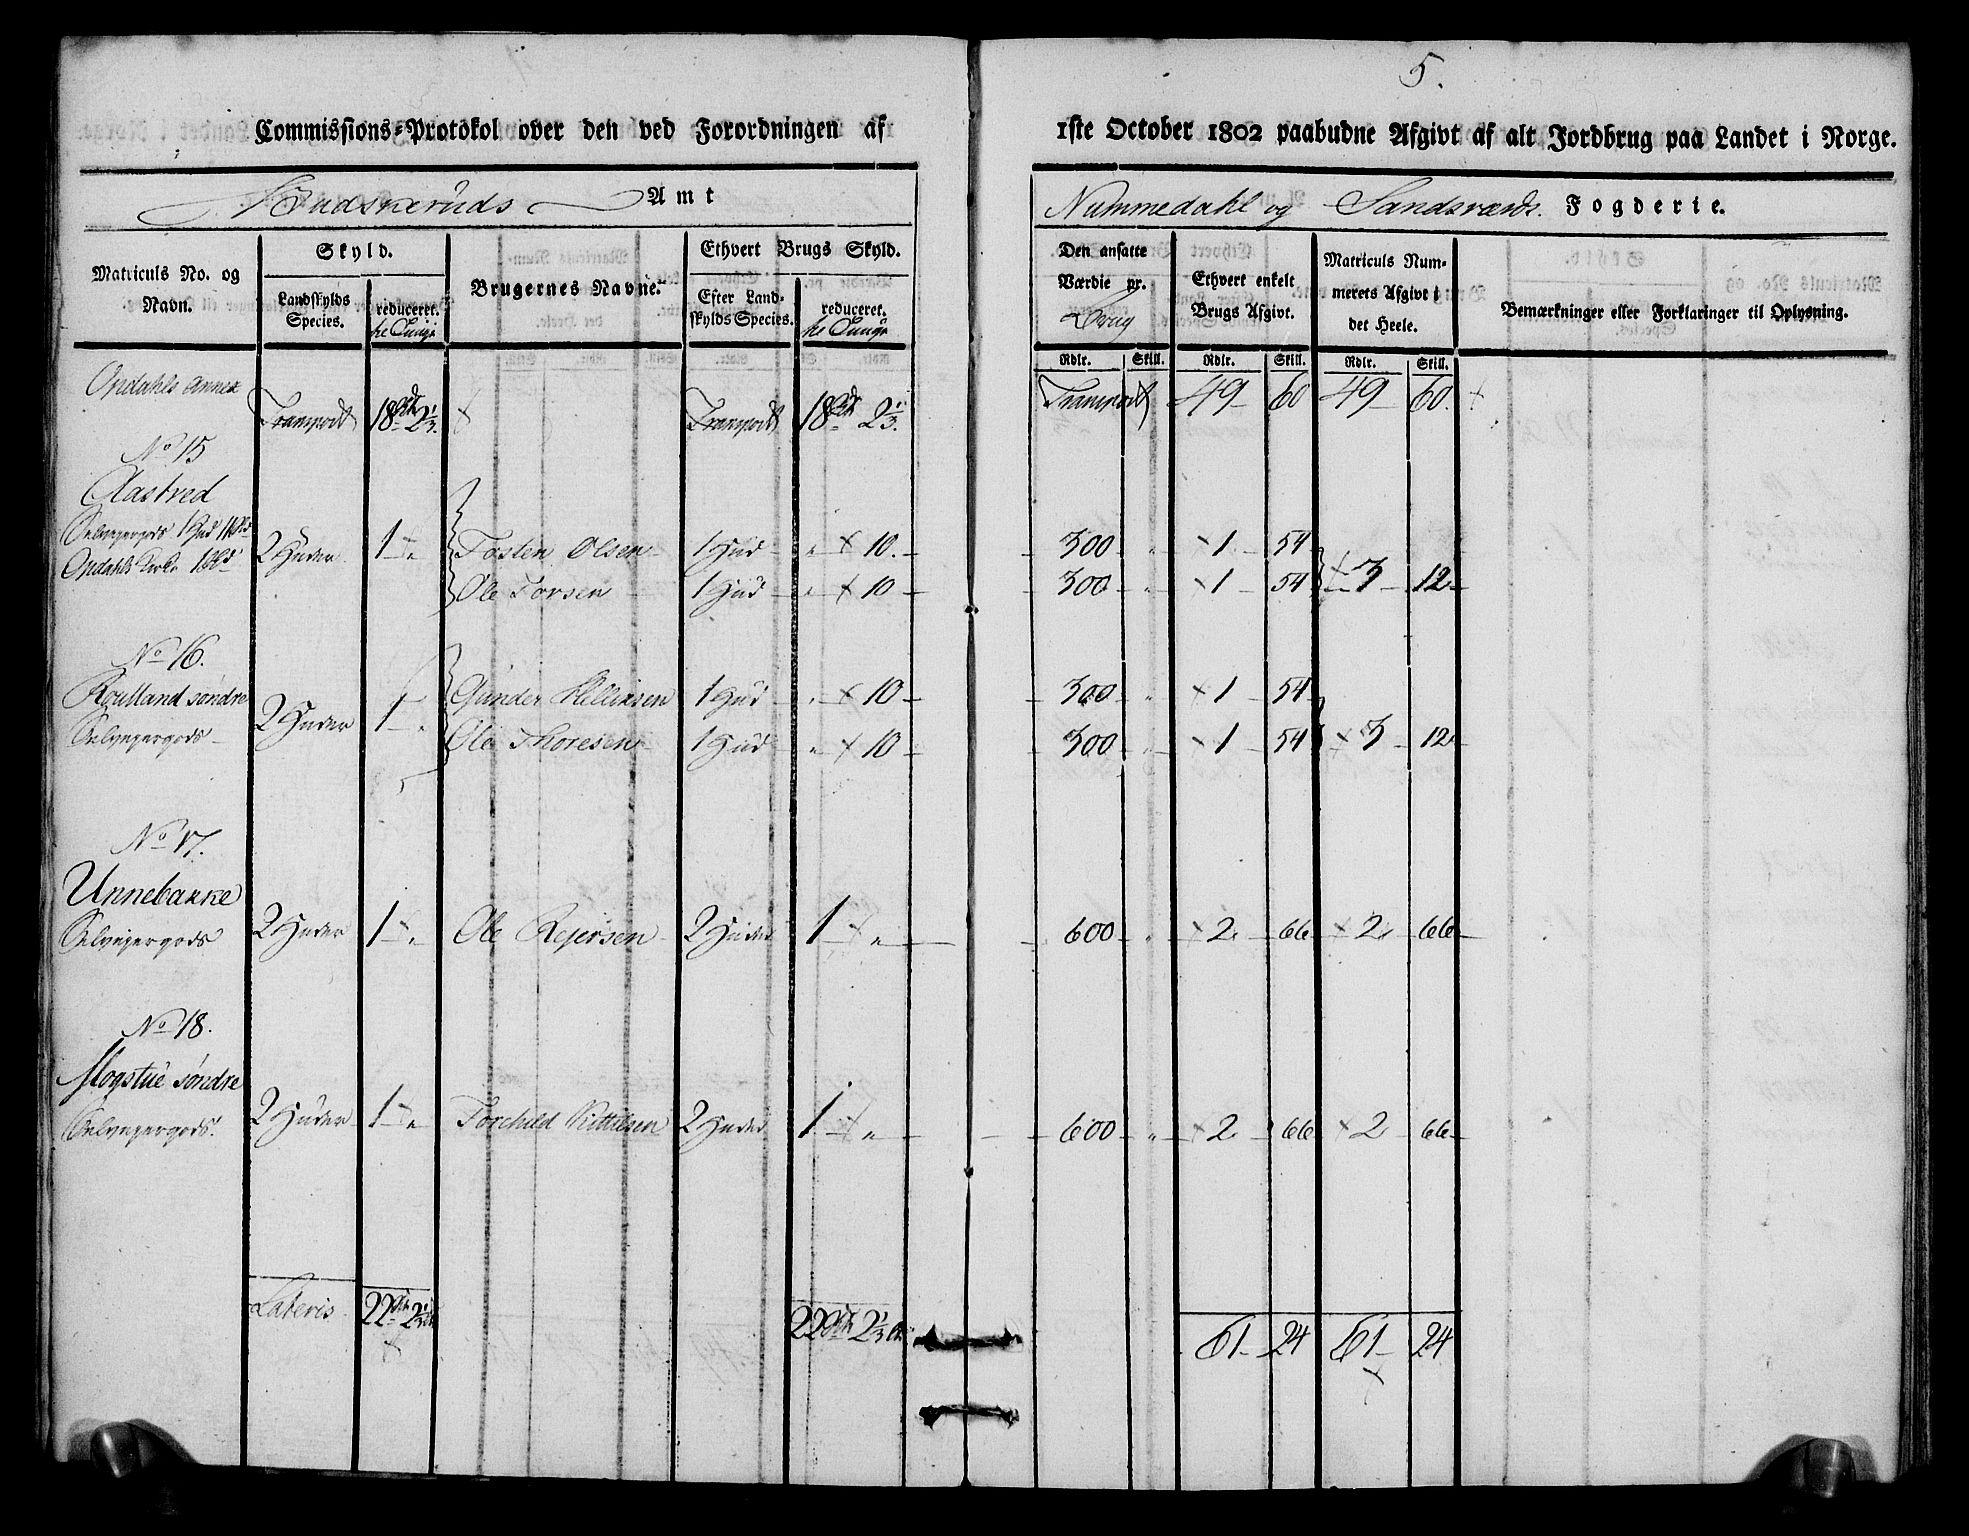 5.
Commissions-Protokol over den ved Forordningen af 1ste October 1802 paabudne Afgivt af alt Jordbrug paa Landet i Norge.
Budskeruds Amt
Nummedahl og Sandsværds Fogderie.
Matriculs No. og Navn.
Skyld.
Landskylds Species.
reduceret.
Brugernes Navne.
Ethvert Brugs Skyld.
Efter Landskylds Species.
reduceret.
Den ansatte Værdie pr. Brug
Ethvert enkelt Brugs Afgivt.
Matriculs Nummerets Afgivt i det Heele.
Bemærkninger eller Forklaringer til Oplysning.
Rdlr. Skill. Rdlr. Skill. Rdlr. Skill.
Opdahls Annex
Transport 18 2⅓ Transport 18 2⅓ Transport 49 60 49 60.
No 15
Aastved
Selvejergods 1 Hud
Opdahls Kirke
2 Huder 1 „ Tosten Olsen 1 Hud „ 10. 300 „ 1 54
Ole Torsen 1 Hud „ 10 300 „ 1 54 3 12
No 16.
Roulland søndre
Selvejergods
2 Huder 1 „ Gunder Hellixsen 1 Hud „ 10 300 „ 1 54
Ole Thoresen 1 Hud „ 10 300 „ 1 54 3 12
No 17.
Unnebakke
Selvejergods
2 Huder 1 „ Ole Rejersen 2 Huder 1 „ 600 „ 2 66 2 66
No 18.
Mogstue søndre
Selvejergods.
2 Huder 1 „ Torchild Kittelsen 2 Huder 1 „ 600 „ 2 66 2 66
Lateris 22 2⅓ 22 2⅓ 61 24 61 24